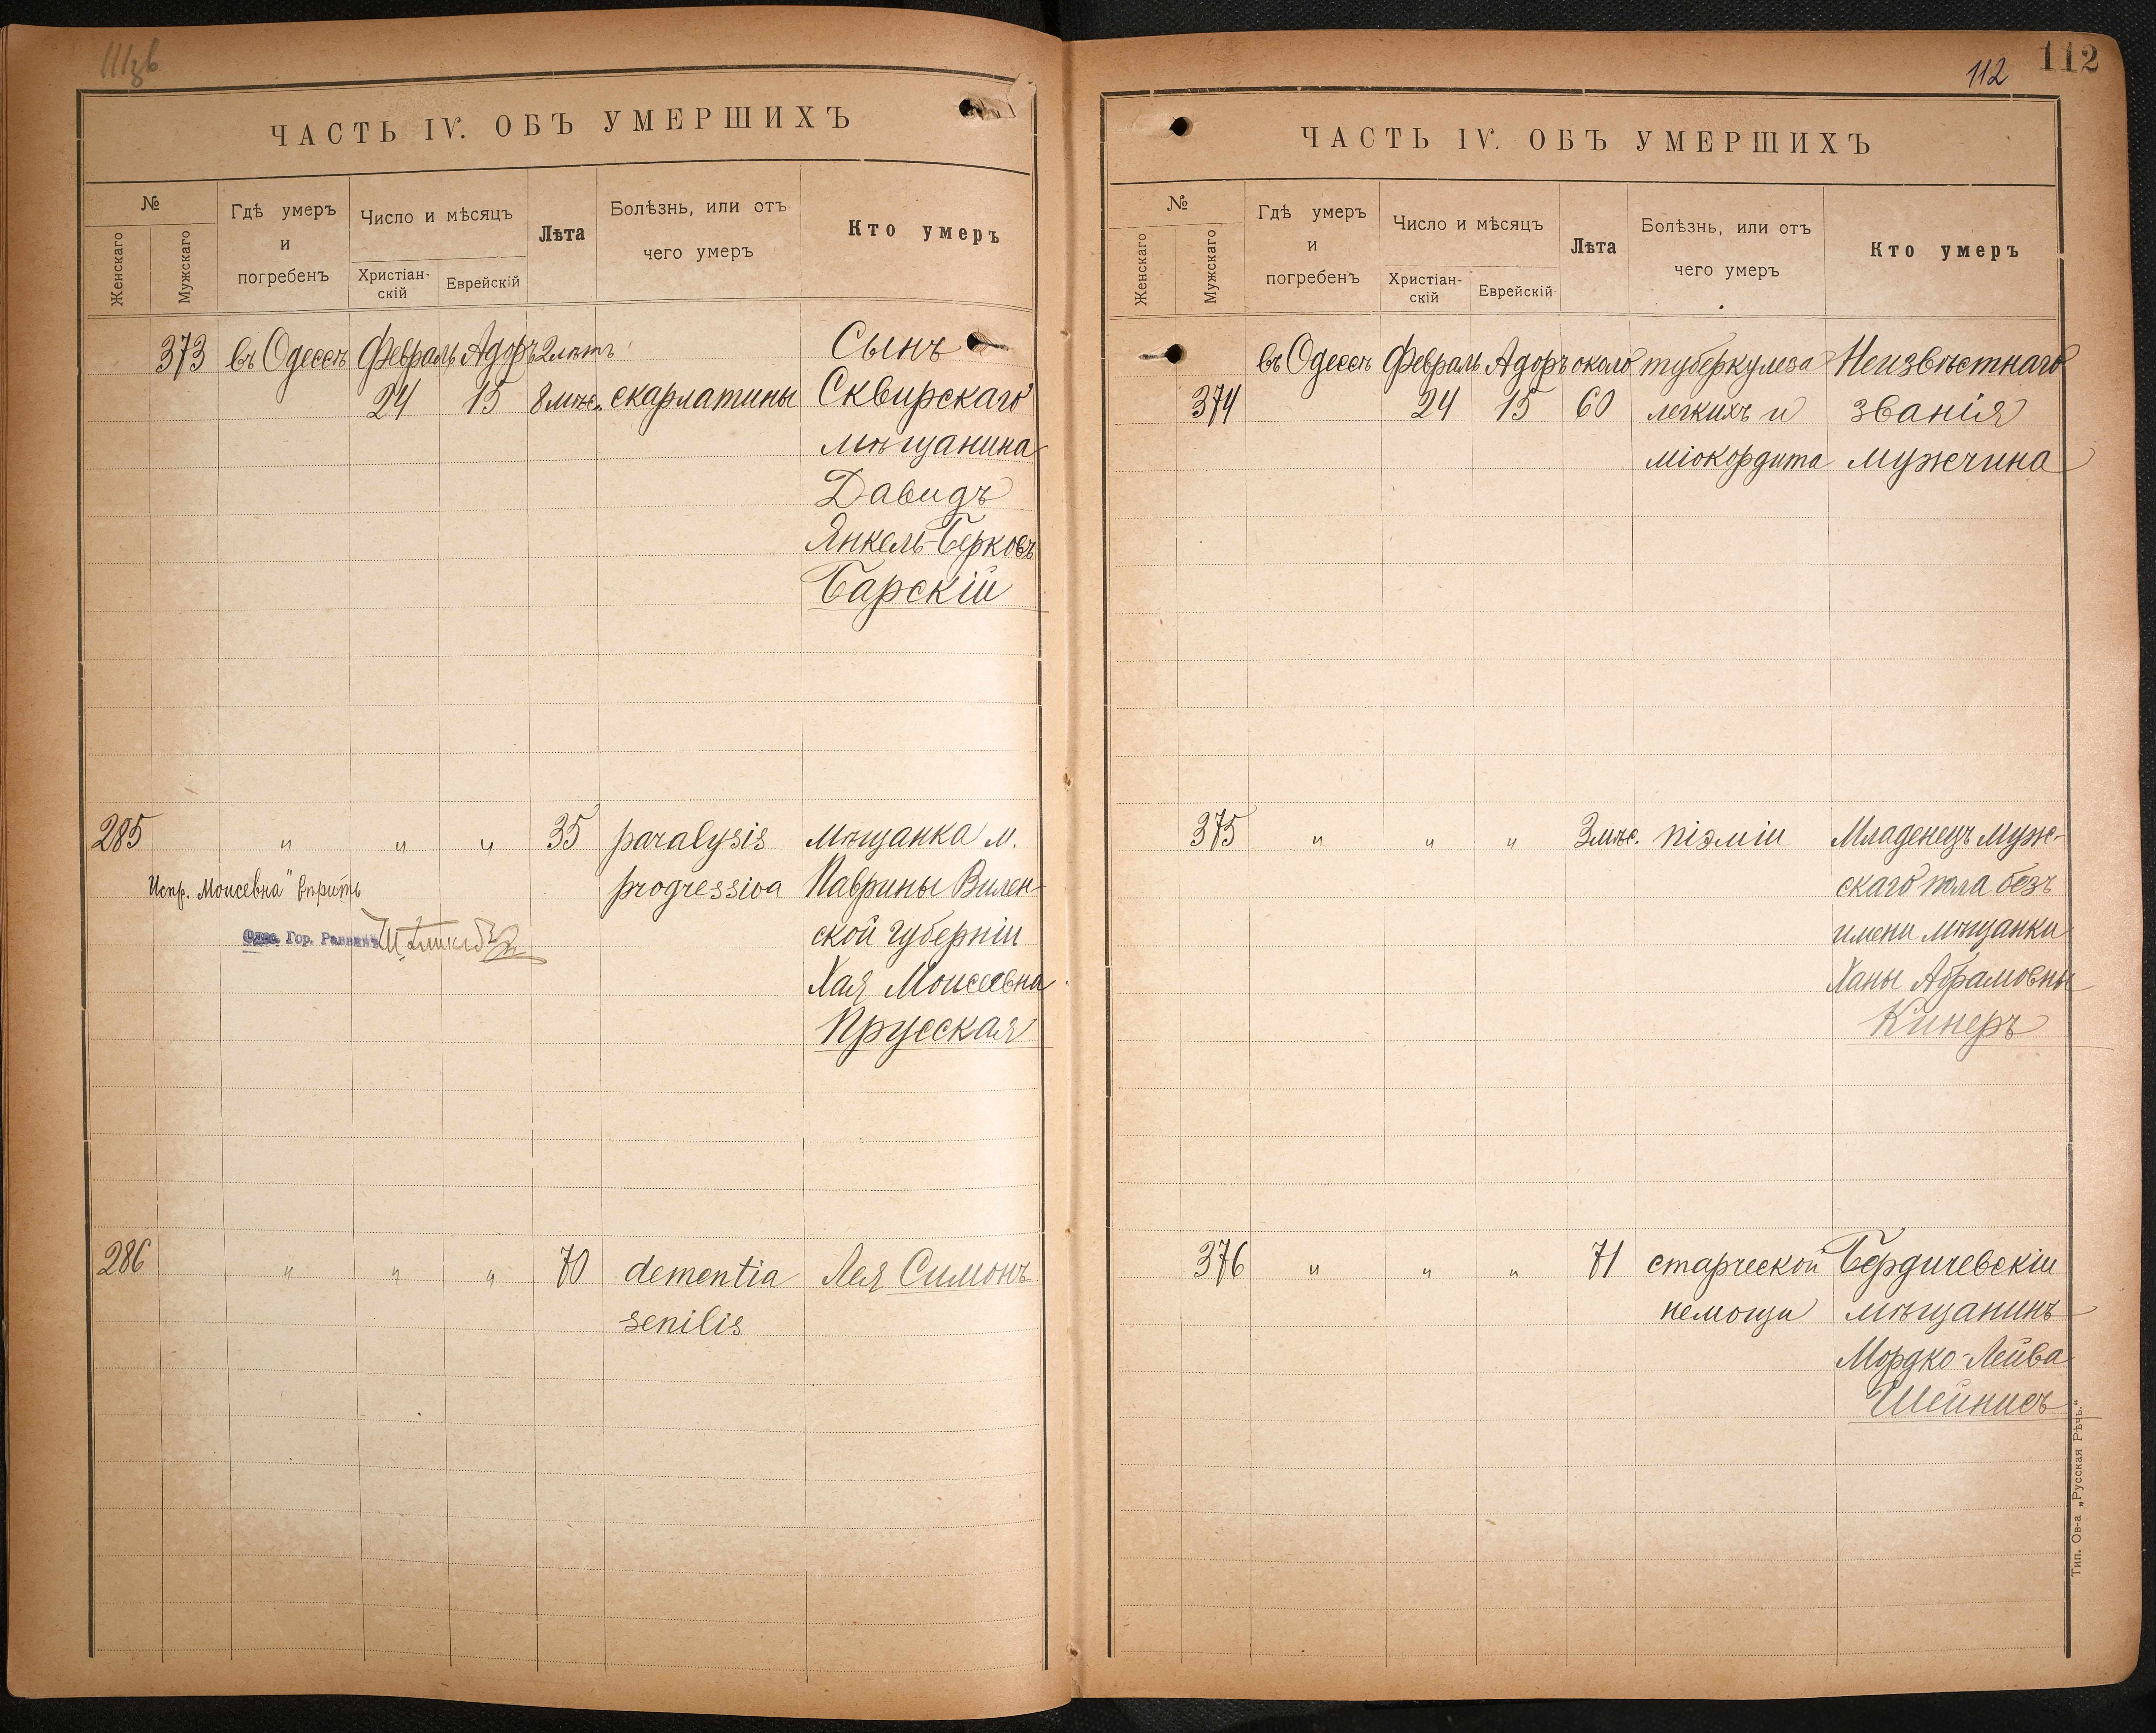 111зв
ЧАСТЬ IV. ОБЪ УМЕРШИХЪ
№
Женскаго
Мужскаго
Гдѣ умеръ
и
погребенъ
Число и мѣсяцъ
Христіан-
скій
Еврейскій
Лѣта
Болѣзнь, или отъ
чего умеръ
Кто умеръ
373 въ Одессѣ Февраль Адоръ 2 лѣтъ Сынъ
24 15 8 мѣс. скарлатины Сквирскаго
мѣщанина
Давидъ
Янкель-Берковъ
Барскій
285 " " " 35 paralysis мѣщанка м.
Испр. Моисевна" вѣрить progressiva Паврины Вилен-
Одес. Гор. Раввинъ ской губерніи
Хая Моисеевна
Прусская
286 " " " 70 dementia Лея Симонъ
senilis
112 112
ЧАСТЬ IV. ОБЪ УМЕРШИХЪ
№
Женскаго
Мужскаго
Гдѣ умеръ
и
погребенъ
Число и мѣсяцъ
Христіан-
скій
Еврейскій
Лѣта
Болѣзнь, или отъ
чего умеръ
Кто умеръ
въ Одессѣ Февраль Адоръ около туберкулеза Неизвѣстнаго
374 24 15 60 легкихъ и званія
міокордита мужчина
375 " " " 3 мѣс. піэміи Младенецъ муж-
скаго пола безъ
имени мѣщанки
Ханы Абрамовны
Кинеръ
376 " " " 71 старческой Бердичевскій
немощи мѣщанинъ
Мордко-Лейва
Шейнисъ
Тип. Ов-а „Русская Рѣчь."